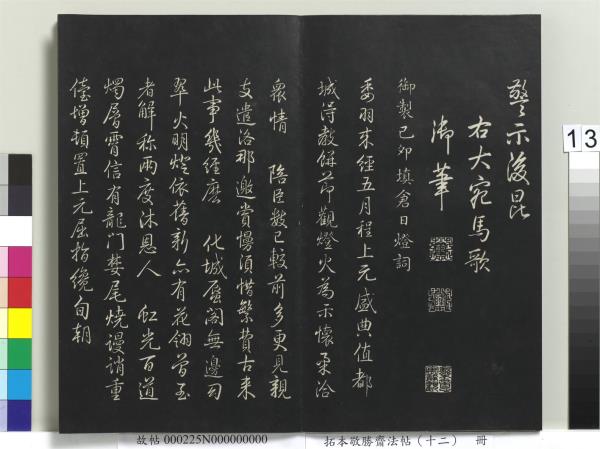 警示後昆
右大宛馬歌
御筆
御製己卯填倉日燈詞
委羽來經五月程上元盛典值都
城浮數餅節觀燈火為示懷柔洽
衆情 陪臣數已較前多更見親
支遣洛那邀賞慢須惜繁費古來
此事幾經麽 化城蜃閣無邊幻
翠火明燈依舊新亦有花翎曾玉
者解稱兩度沐恩人 虹光百道
燭層霄信有龍門婪尾燒謾誚重
儓增頓置上元屈指纔旬朝
13
故帖 000225N000000000
拓本敬勝齋法帖（十二） 冊